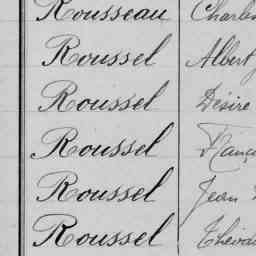 Rousseau Charles
Roussel Albert
Roussel Désiré
Roussel
Roussel Jean
Roussel